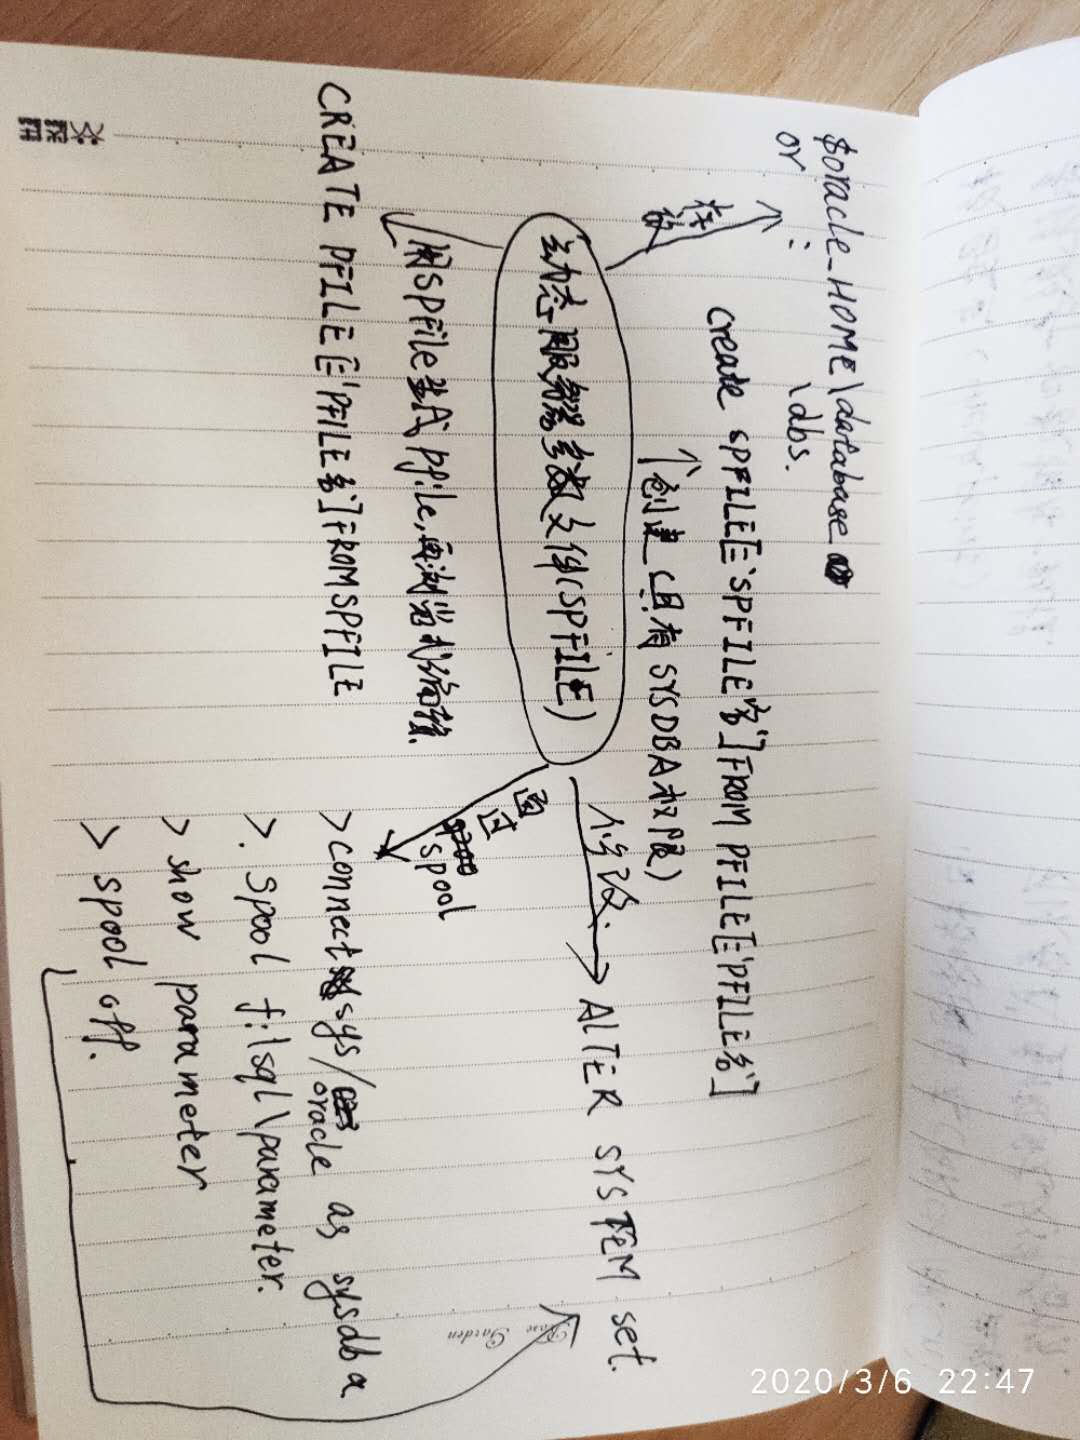 $oracle_HOME\database
or : \dbs.
存储
create SPFILE[='SPFILE名'] FROM PFILE[='PFILE名']
↑创建(具有SYSDBA权限)
动态服务器参数文件(SPFILE)
修改.
ALTER SYSTEM set.
通过
spool
用SPFile生成pfile,再浏览或编辑.
CREATE PFILE[='PFILE名']FROM SPFILE
>connect sys/oracle as sysdba
>. spool f:\sql\parameter.
> show parameter
> spool off.
Rose Garden
2020/3/6 22:47